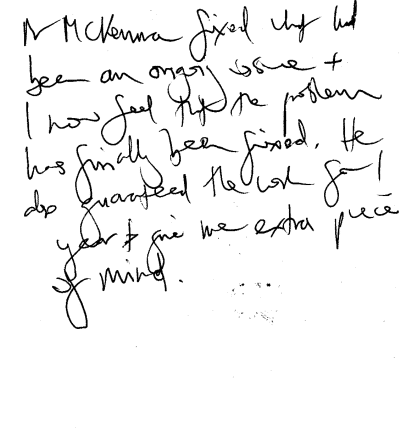 Mr McKenna fixed what had
been an ongoing issue +
I now feel that the problem
has finally been fixed. He
also guaranteed the work for 1
year to give me extra piece
of mind.